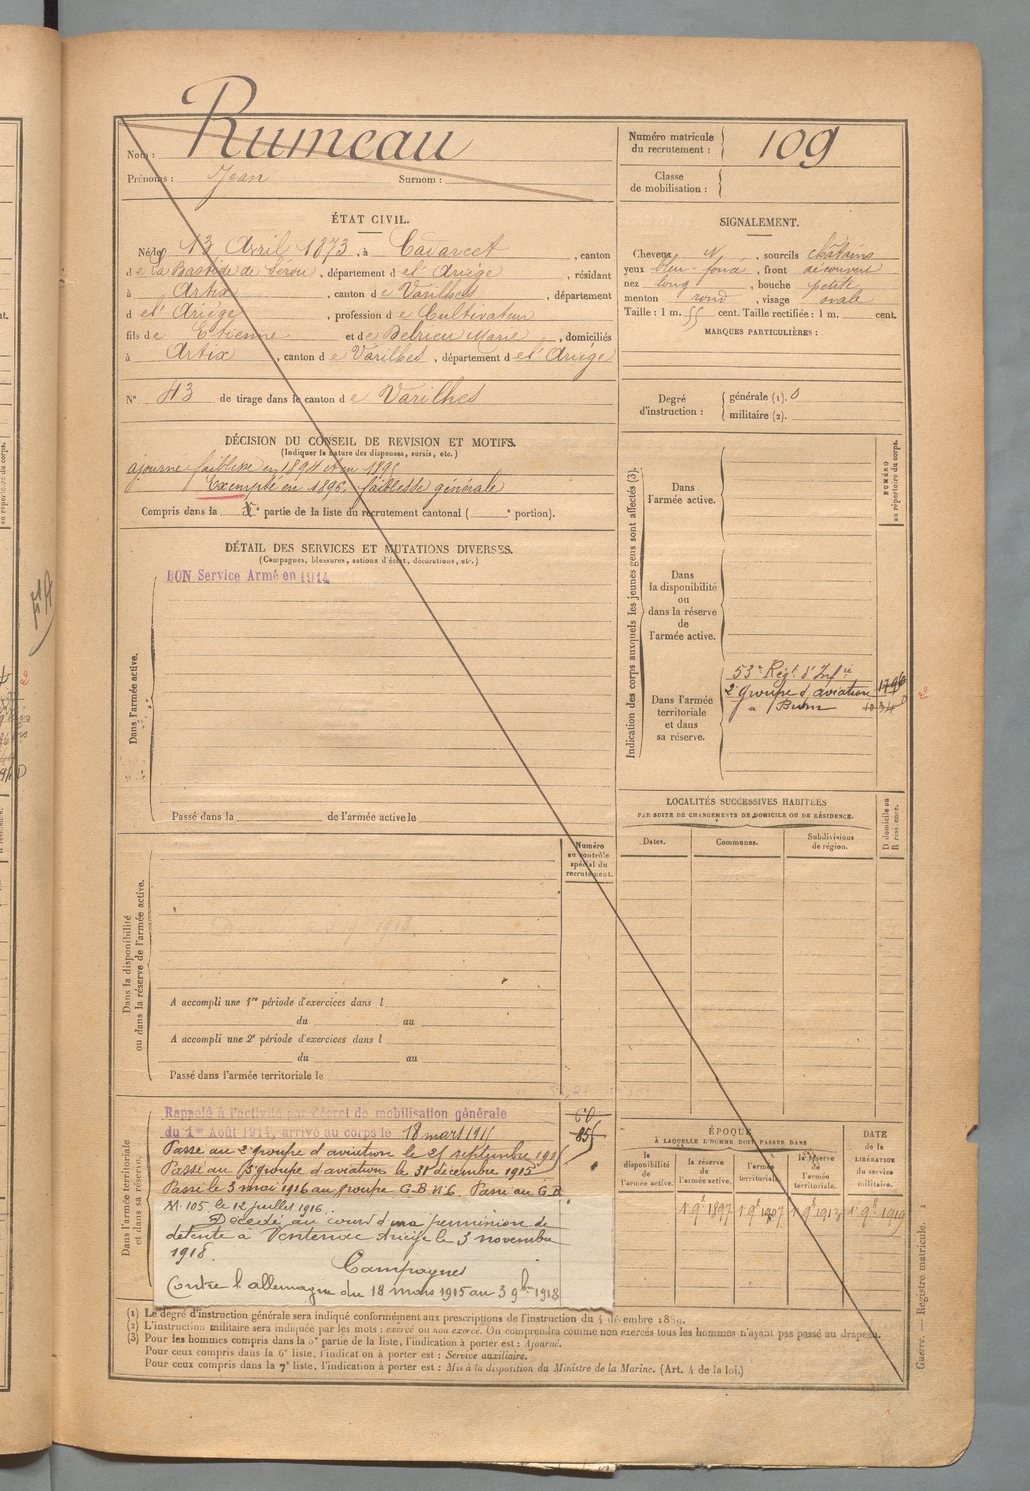 Nom : Rumeau
Prénoms : Jean Surnom :
Numéro matricule du recrutement : 109
Classe de mobilisation :
ÉTAT CIVIL.
Né le 13 Avril 1873, à Cadarcet, canton
de La Bastide de Sérou, département de l'Ariège, résidant
à Artix, canton de Varilhes, département
de l'Ariège, profession de Cultivateur
fils de Etienne et de Belrieu Marie, domiciliés
à Artix, canton de Varilhes, département de l'Ariège
N° 43 de tirage dans le canton de Varilhes
SIGNALEMENT.
Cheveux N, sourcils châtains
yeux bleu-foncé, front découvert
nez long, bouche petite
menton rond, visage ovale
Taille : 1 m. 55 cent. Taille rectifiée : 1 m. cent.
MARQUES PARTICULIÈRES :
Degré d'instruction : générale (1). 0
militaire (2).
DÉCISION DU CONSEIL DE REVISION ET MOTIFS.
(Indiquer la nature des dispenses, sursis, etc.)
ajourné faiblesse en 1894 et en 1895
Exempté en 1896. faiblesse générale
Compris dans la e partie de la liste du recrutement cantonal ( e portion).
DÉTAIL DES SERVICES ET MUTATIONS DIVERSES.
(Campagnes, blessures, actions d'éclat, décorations, etc.)
Dans l'armée active.
BON Service Armé en 1914
Passé dans la de l'armée active le
Numéro au contrôle spécial du recrutement.
Dans la disponibilité ou dans la réserve de l'armée active.
A accompli une 1re période d'exercices dans l
du au
A accompli une 2e période d'exercices dans l
du au
Passé dans l'armée territoriale le
Dans l'armée territoriale et dans sa réserve.
Rappelé à l'activité par décret de mobilisation générale
du 1er Août 1914, arrivé au corps le 18 mars 1915
Passé au 2e groupe d'aviation le 25 septembre 1915
Passé au groupe d'aviation le 31 décembre 1915
Passé le 3 mai 1916 au groupe G.B. N°6. Passé au G.B
M. 105 le 12 juillet 1916.
Décédé au cours d'une permission de
détente à Ventenac Ariège le 3 novembre
1918.
Campagnes
Contre l'allemagne du 18 mars 1915 au 3 9bre 1918
60
85
Indication des corps auxquels les jeunes gens sont affectés (3).
NUMÉRO au répertoire du corps.
Dans l'armée active.
Dans la disponibilité ou dans la réserve de l'armée active.
Dans l'armée territoriale et dans sa réserve.
53e Régt d'Infie
2e groupe d'aviation
à Bron
2
LOCALITÉS SUCCESSIVES HABITÉES
PAR SUITE DE CHANGEMENTS DE DOMICILE OU DE RÉSIDENCE.
Dates. Communes. Subdivisions de région.
D domicile ou R résidence.
ÉPOQUE
À LAQUELLE L'HOMME DOIT PASSER DANS
DATE de la LIBÉRATION du service militaire.
la disponibilité de l'armée active. la réserve de l'armée active. l'armée territoriale. la réserve de l'armée territoriale.
1 9bre 1897 1 9bre 1907 1 9bre 1913 1 9bre 1919
(1) Le degré d'instruction générale sera indiqué conformément aux prescriptions de l'instruction du 4 décembre 1889.
(2) L'instruction militaire sera indiquée par les mots : exercé ou non exercé. On comprendra comme non exercés tous les hommes n'ayant pas passé au drapeau.
(3) Pour les hommes compris dans la 5e partie de la liste, l'indication à porter est : Ajourné.
Pour ceux compris dans la 6e liste, l'indication à porter est : Service auxiliaire.
Pour ceux compris dans la 7e liste, l'indication à porter est : Mis à la disposition du Ministre de la Marine. (Art. 4 de la loi.)
Guerre. — Registre matricule. 1